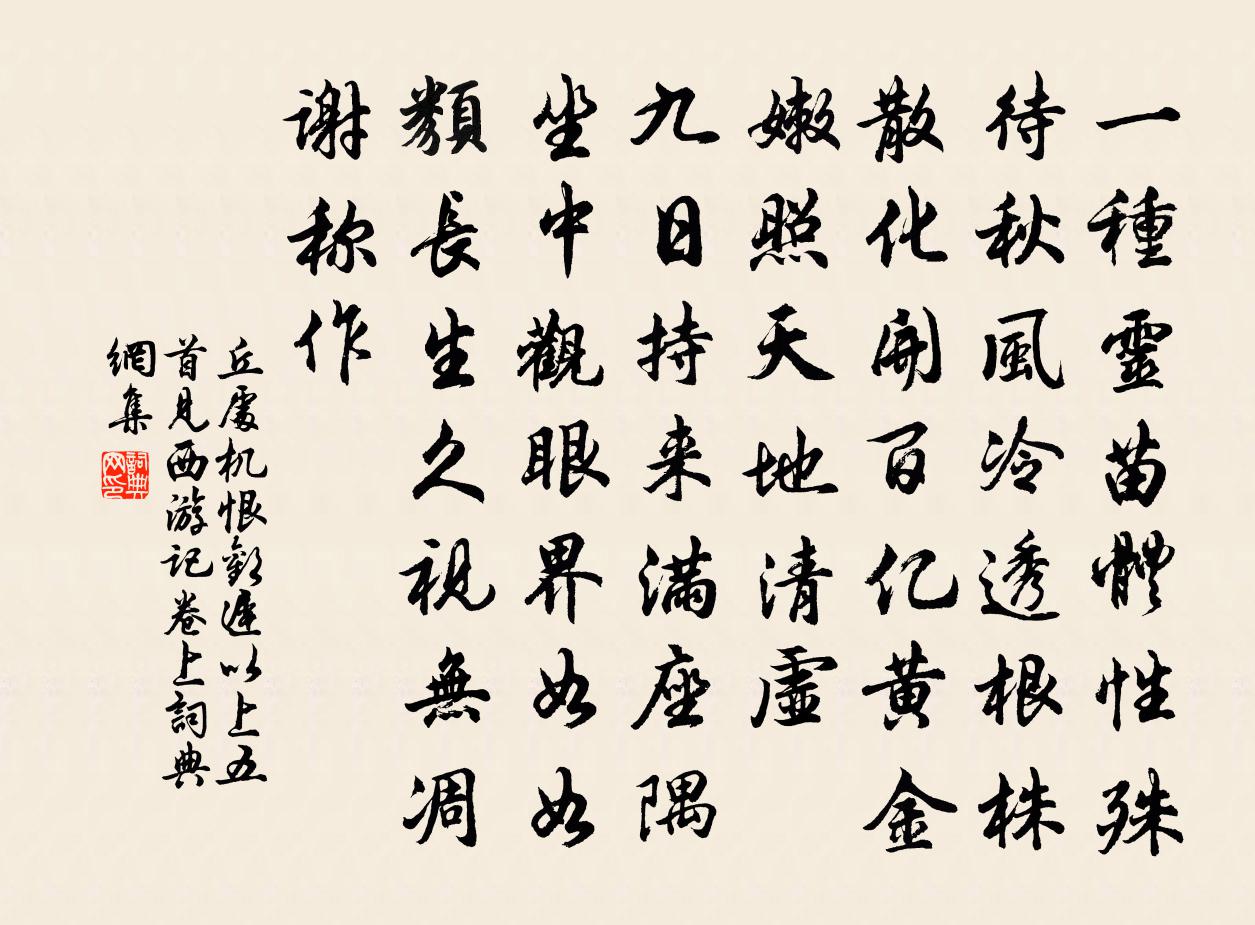 一種靈苗體性殊
待秋風冷透根株
散化開百亿黄金
嫩照天地清虛
九日持来满座隅
坐中觀眼界如如
類長生久視無凋
谢称作
丘處机恨歡遲以上五
首見西游记卷上詞典
網集
詞典网